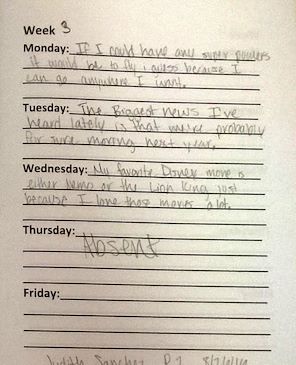 Week 3
Monday: If I could have any super powers
it would be to fly i guess because I
can go anywhere I want.
Tuesday: The Biggest news I've
heard lately is that we're probably
for sure moving next year.
Wednesday: My favorite Disney movie is
either Nemo or the Lion King just
because I love those movies a lot.
Thursday:
Absent
Friday:
Judith Sanchez P.2